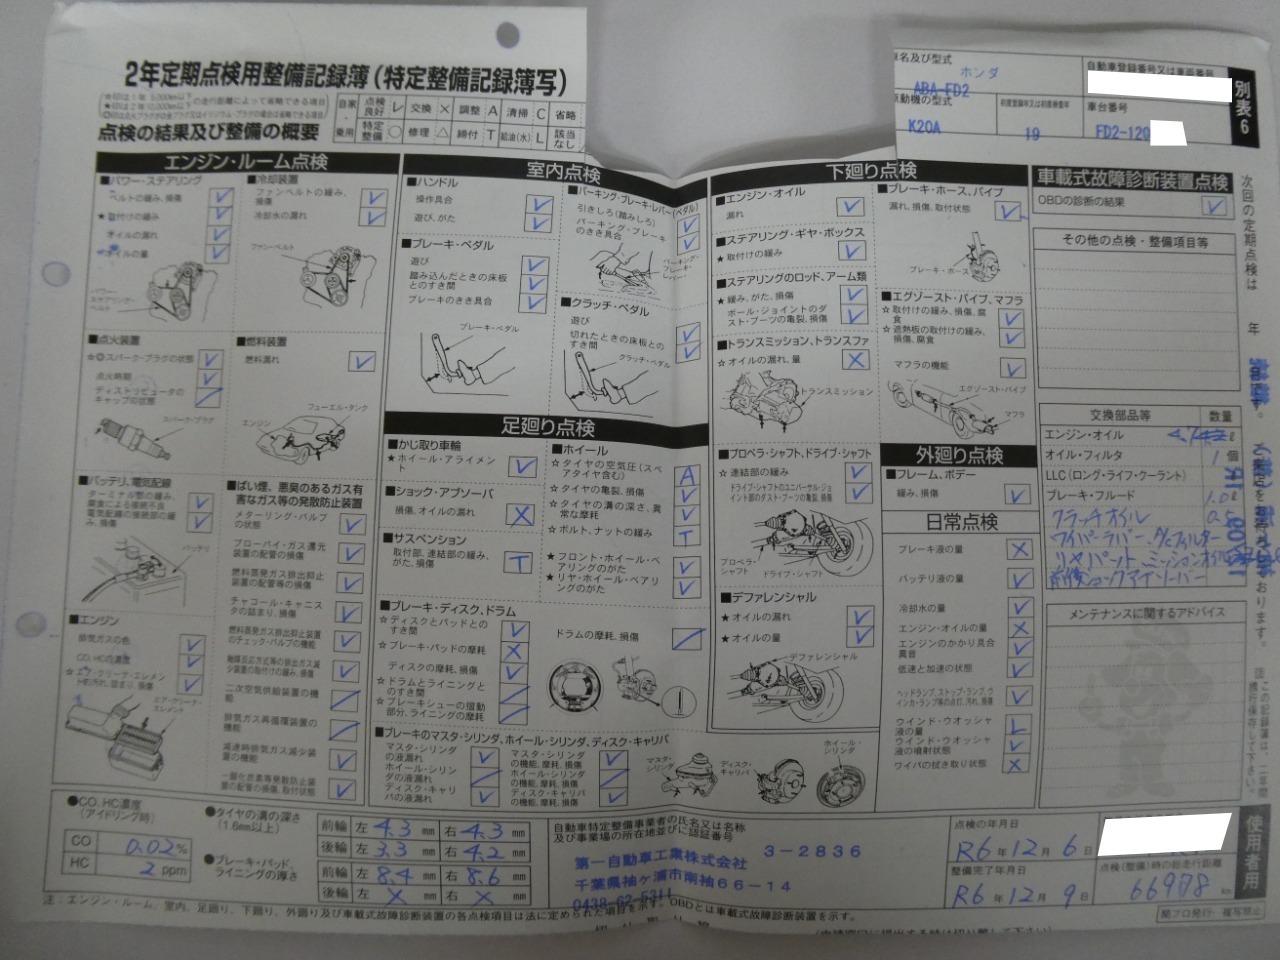 2年定期点検用整備記録簿(特定整備記録簿写)
点検の結果及び整備の概要
自家・乗用
点検良好 レ 交換 × 調整 A 清掃 C 省略
特定整備 ○ 修理 △ 締付 T 給油(水) L 該当なし
車名及び型式
ホンダ
ABA-FD2
自動車登録番号又は車両番号
原動機の型式
K20A
初度登録年又は初度検査年
19
車台番号
FD2-120
別表6
エンジン・ルーム点検
■パワー・ステアリング
ベルトの緩み、損傷
★取付けの緩み
オイルの漏れ
オイルの量
パワー・ステアリング・ベルト
■冷却装置
ファンベルトの緩み、損傷
冷却水の漏れ
ファン・ベルト
■点火装置
☆◎スパーク・プラグの状態
点火時期
ディストリビュータのキャップの状態
スパーク・プラグ
■燃料装置
燃料漏れ
フューエル・タンク
エンジン
■バッテリ、電気配線
ターミナル部の緩み、腐食による接続不良
電気配線の接続部の緩み、損傷
バッテリ
■ばい煙、悪臭のあるガス有害なガス等の発散防止装置
メターリング・バルブの状態
ブローバイ・ガス還元装置の配管の損傷
燃料蒸発ガス排出抑止装置の配管等の損傷
チャコール・キャニスタの詰まり、損傷
燃料蒸発ガス排出抑止装置のチェック・バルブの機能
触媒反応方式等の排出ガス減少装置の取付けの緩み、損傷
二次空気供給装置の機能
排気ガス再循環装置の機能
減速時排気ガス減少装置の機能
一酸化炭素等発散防止装置の配管の損傷、取付状態
■エンジン
排気ガスの色
CO、HCの濃度
☆エア・クリーナ・エレメントの汚れ、詰まり、損傷
エア・クリーナ・エレメント
室内点検
■ハンドル
操作具合
遊び、がた
■ブレーキ・ペダル
遊び
踏み込んだときの床板とのすき間
ブレーキのきき具合
ブレーキ・ペダル
■パーキング・ブレーキ・レバー(ペダル)
引きしろ(踏みしろ)
パーキング・ブレーキのきき具合
パーキング・ブレーキ・レバー
■クラッチ・ペダル
遊び
切れたときの床板とのすき間
クラッチ・ペダル
足廻り点検
■かじ取り車輪
★ホイール・アライメント
■ショック・アブソーバ
損傷、オイルの漏れ
■サスペンション
取付部、連結部の緩み、がた、損傷
■ホイール
☆タイヤの空気圧(スペアタイヤ含む)
☆タイヤの亀裂、損傷
☆タイヤの溝の深さ、異常な摩耗
☆ボルト、ナットの緩み
★フロント・ホイール・ベアリングのがた
★リヤ・ホイール・ベアリングのがた
■ブレーキ・ディスク、ドラム
☆ディスクとパッドとのすき間
☆ブレーキ・パッドの摩耗
ディスクの摩耗、損傷
☆ドラムとライニングとのすき間
☆ブレーキシューの摺動部分、ライニングの摩耗
ドラムの摩耗、損傷
■ブレーキのマスタ・シリンダ、ホイール・シリンダ、ディスク・キャリパ
マスタ・シリンダの液漏れ
ホイール・シリンダの液漏れ
ディスク・キャリパの液漏れ
マスタ・シリンダの機能、摩耗、損傷
ホイール・シリンダの機能、摩耗、損傷
ディスク・キャリパの機能、摩耗、損傷
マスタ・シリンダ
ディスク・キャリパ
ホイール・シリンダ
下廻り点検
■エンジン・オイル
漏れ
■ステアリング・ギヤ・ボックス
★取付けの緩み
■ステアリングのロッド、アーム類
★緩み、がた、損傷
ボール・ジョイントのダスト・ブーツの亀裂、損傷
■トランスミッション、トランスファ
☆オイルの漏れ、量
トランスミッション
■プロペラ・シャフト、ドライブ・シャフト
☆連結部の緩み
ドライブ・シャフトのユニバーサル・ジョイント部のダスト・ブーツの亀裂、損傷
プロペラ・シャフト
ドライブ・シャフト
■デファレンシャル
★オイルの漏れ
★オイルの量
デファレンシャル
■ブレーキ・ホース、パイプ
漏れ、損傷、取付状態
ブレーキ・ホース
■エグゾースト・パイプ、マフラ
☆取付けの緩み、損傷、腐食
☆遮熱板の取付けの緩み、損傷、腐食
マフラの機能
エグゾースト・パイプ
マフラ
外廻り点検
■フレーム、ボデー
緩み、損傷
日常点検
ブレーキ液の量
バッテリ液の量
冷却水の量
エンジン・オイルの量
エンジンのかかり具合異音
低速と加速の状態
ヘッドランプ、ストップ・ランプ、ウインカ・ランプ等の点灯、汚れ、損傷
ウインド・ウオッシャ液の量
ウインド・ウオッシャ液の噴射状態
ワイパの拭き取り状態
車載式故障診断装置点検
OBDの診断の結果
その他の点検・整備項目等
交換部品等 数量
エンジン・オイル
オイル・フィルタ 1個
LLC(ロング・ライフ・クーラント)
ブレーキ・フルード 1.0ℓ
クラッチオイル 0.5
ワイパーラバー
前後ショックアブソーバー
メンテナンスに関するアドバイス
次回の定期点検は 年
●CO、HC濃度(アイドリング時)
CO 0.02%
HC 2 ppm
●タイヤの溝の深さ(1.6mm以上)
前輪 左 4.3 mm 右 4.3 mm
後輪 左 3.3 mm 右 4.2 mm
●ブレーキ・パッド、ライニングの厚さ
前輪 左 8.4 mm 右 8.6 mm
後輪 左 × mm 右 × mm
自動車特定整備事業者の氏名又は名称及び事業場の所在地並びに認証番号
3-2836
第一自動車工業株式会社
千葉県袖ヶ浦市南袖66-14
0438-62-5311
点検の年月日
R6年12月6日
整備完了年月日
R6年12月9日
点検(整備)時の総走行距離
66978 km
使用者用
注:エンジン・ルーム、室内、足廻り、下廻り、外廻り及び車載式故障診断装置の各点検項目は法に定められた項目を示す。OBDとは車載式故障診断装置を示す。
関フロ発行・複写禁止